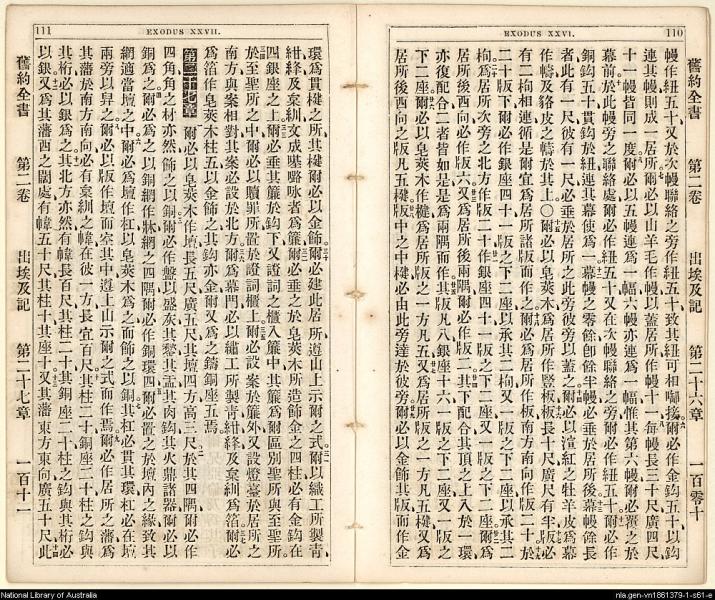 EXODUS XXVI.
110
舊約全書
第二卷
出埃及記
第二十六章
一百零十
幔作紐五十又於次幔聯絡之旁作紐五十致其紐可相聯接爾必作金鈎五十以鈎
連其幔則成一居所爾必以山羊毛作幔以蓋居所作幔十一每幔長三十尺廣四尺
十一幔皆同一度爾必以五幔連爲一幅六幔亦連爲一幅惟其第六幔爾必疊之於
幕前於此幔旁之聯絡處爾必作紐五十又在次幔聯絡之旁作紐五十爾必作
銅鈎五十貫鈎於紐連其幕使爲一幕幔之零餘卽餘半幔必垂於居所後幕幔餘長
者此有一尺彼有一尺必垂於居所之此旁彼旁以蓋之爾必以渲紅之牡羊皮爲幕
作幬及貉皮之幬於其上〇爾必以皂莢木爲居所作豎板板長十尺廣尺有半版必
有二枸相連循是爾宜爲居所諸版而作之爾必爲居所作板南方南向作版二十於
二十版下爾必作銀座四十一版之下二座以承其二枸又一版之下二座以承其二
枸爲居所次旁之北方作版二十作銀座四十一版之下二座又一版之下二座爾爲
居所後西向必作版六又爲居所後兩隅爾必作版二其下配合其頂之上入於一環
亦復配合二者皆如是是爲兩隅而作其版凡八銀座十六一版之下二座又一版之
下二座爾必以皂莢木作楗爲居所版之一方凡五又爲居所版之一方凡五楗又爲
居所後西向之版凡五楗版中之中楗必由此旁達於彼旁爾必以金飾其版而作金
111
EXODUS XXVII.
環爲貫楗之所其楗爾必以金飾爾必建此居所遵山上示爾之式爾以織工所製青
紺絳及枲紃文成𠼻𠸄咏者爲簾爾必垂之於皂莢木所造飾金之四柱必有金鈎在
四銀座之上爾必垂其簾於鈎下又證詞之櫃入簾中其簾必爲爾區別聖所與至聖所
於至聖所之中爾必以贖罪所置於證詞櫃上爾必設案於簾外又設燈臺於居所之
南方與案相對其案必設於北方爾爲幕門必以繡工所製青紺絳及枲紃爲箔爾必
爲箔作皂莢木柱五以金飾之其鈎亦金爾又爲之鑄銅座五焉
第二十七章 爾必以皂莢木作壇長五尺廣五尺其壇四方高三尺於其四隅爾必作
四角角之材亦然飾之以銅爾必作盤以盛灰其㷅其盂其肉鈎其火鼎諸器爾必以
銅爲之爾必爲之以銅網作牀網之四隅爾必作銅環四爾必置之於壇內之緣致其
網適當壇之中爾必爲壇作杠以皂莢木爲之而飾之以銅其杠必貫其環杠必在壇
兩旁以舁之爾必以版作壇而空其中遵上山示爾之式而作焉爾必作居所之藩爲
其藩於南方南向必有枲紃之幃在彼一方長宜百尺其柱二十銅座二十柱之鈎與
其桁必以銀爲之其北方亦然有幃長百尺其柱二十其銅座二十柱之鈎與其桁必
以銀又爲其藩西之闊處有幃五十尺其柱十其座十又其藩東方東向廣五十尺此
舊約全書
第二卷
出埃及記
第二十七章
一百十一
National Library of Australia
nla.gen-vn1861379-1-s61-e